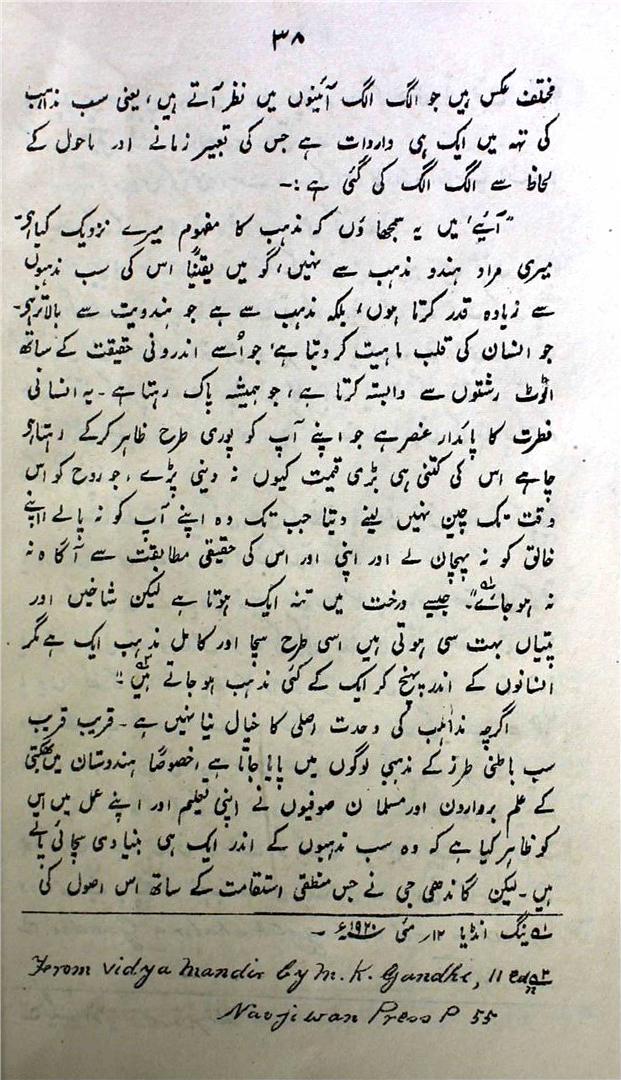 ۳۸
مختلف عکس ہیں جو الگ الگ آئینوں میں نظر آتے ہیں، یعنی سب مذاہب
کی تہ میں ایک ہی واردات ہے جس کی تعبیر زمانے اور ماحول کے
لحاظ سے الگ الگ کی گئی ہے :۔
"آئیے، میں یہ سمجھا ؤں کہ مذہب کا مفہوم میرے نزدیک کیا ہے۔
میری مراد ہندو مذہب سے نہیں، گو میں یقیناً اس کی سب مذہبوں
سے زیادہ قدر کرتا ہوں، بلکہ مذہب سے ہے جو ہندویت سے بالاتر ہے۔
جو انسان کی قلب ماہیت کر دیتا ہے، جو اُسے اندرونی حقیقت کے ساتھ
اٹوٹ رشتوں سے وابستہ کرتا ہے، جو ہمیشہ پاک رہتا ہے ۔ یہ انسانی
فطرت کا پائدار عنصر ہے جو اپنے آپ کو پوری طرح ظاہر کرکے رہتا ہے
چاہے اس کی کتنی ہی بڑی قیمت کیوں نہ دینی پڑے ، جو روح کو اس
وقت تک چین نہیں لینے دیتا جب تک وہ اپنے آپ کو نہ پالے اپنے
خالق کو نہ پہچان لے اور اپنی اور اس کی حقیقی مطابقت سے آگاہ نہ
نہ ہو جائے۱۔" جیسے درخت میں تنہ ایک ہوتا ہے لیکن شاخیں اور
پتیاں بہت سی ہوتی ہیں اسی طرح سچا اور کامل مذہب ایک ہے مگر
انسانوں کے اندر پہنچ کر ایک کے کئی مذہب ہو جاتے ہیں۲۔"
اگرچہ مذاہب کی وحدت اصلی کا خیال نیا نہیں ہے ۔ قریب قریب
سب باطنی طرز کے مذہبی لوگوں میں پایا جاتا ہے، خصوصاً ہندوستان میں بھگتی
کے علم برداروں اور مسلمان صوفیوں نے اپنی تعلیم اور اپنے عمل میں اس
کو ظاہر کیا ہے کہ وہ سب مذہبوں کے اندر ایک ہی بنیادی سچائی پاتے
ہیں ۔ لیکن گاندھی جی نے جس منطقی استقامت کے ساتھ اس اصول کی
۱؎ ینگ انڈیا ۱۲؍ مئی ۱۹۲۰ء ۔
From Vidya Mandir by M. K. Gandhi, II edn ۲؎
Navjiwan Press P 55